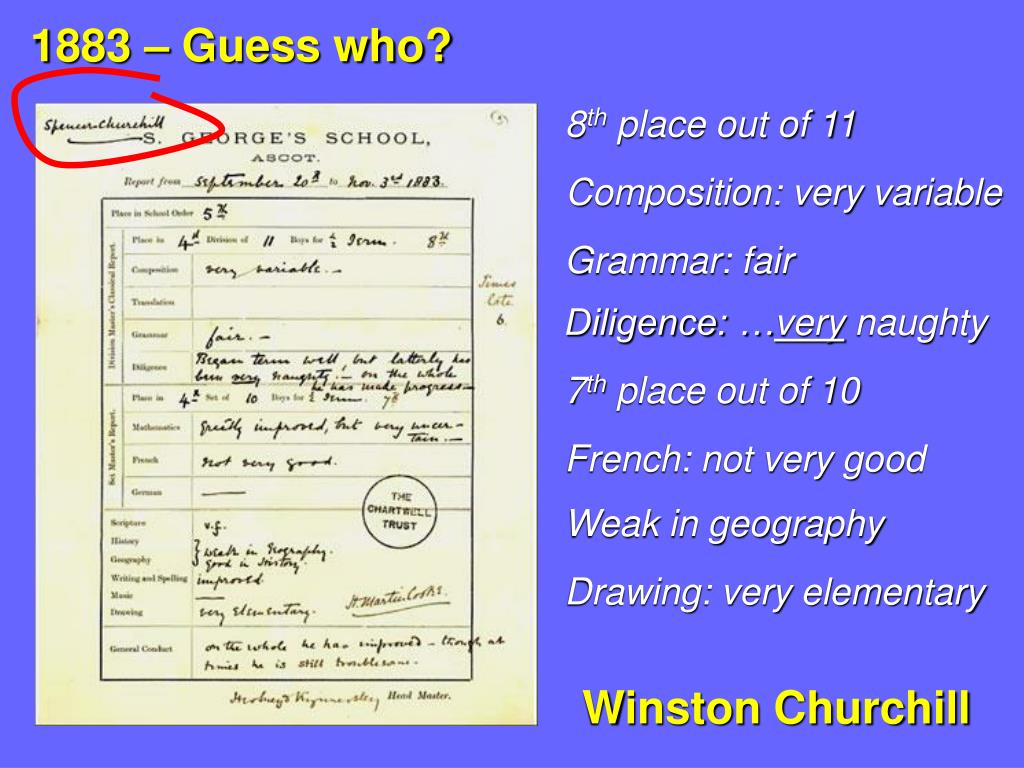 1883 – Guess who?
Spencer-Churchill
(3)
S. GEORGE'S SCHOOL,
ASCOT.
Report from September 20th to Nov. 3rd 1883.
Place in School Order 5th
Division Master's Classical Report.
Place in 4th Division of 11 Boys for ½ Term. 8th
Composition very variable. –
Translation
Times late 6.
Grammar fair. –
Diligence Began term well, but latterly has
been very naughty. – on the whole
he has made progress –
Set Master's Report.
Place in 4th Set of 10 Boys for ½ Term. 7th
Mathematics Greatly improved, but very uncer-
tain. –
French not very good.
German
THE
CHARTWELL
TRUST
Scripture v.f.
History
Geography weak in Geography.
good in History.
Writing and Spelling improved
Music
Drawing very elementary.
H. Martin Cooke.
General Conduct on the whole he has improved – though at
times he is still troublesome.
Head Master.
8th place out of 11
Composition: very variable
Grammar: fair
Diligence: …very naughty
7th place out of 10
French: not very good
Weak in geography
Drawing: very elementary
Winston Churchill